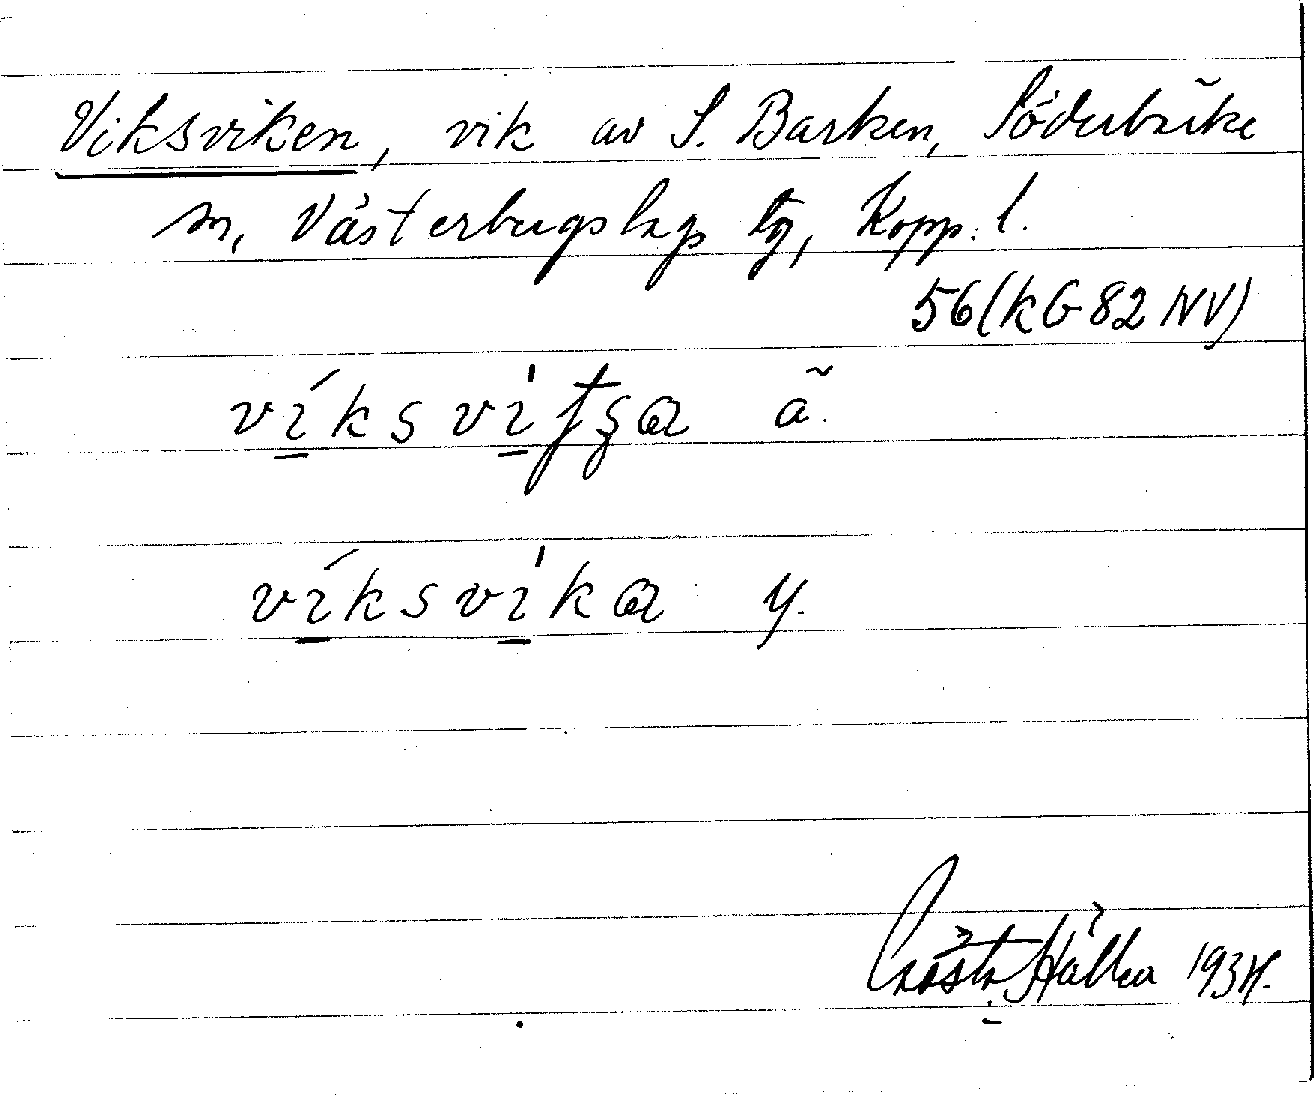 Viksviken, vik av S. Barken, Söderbärke
sn, Västerbergslags tg, Kopp. l.
56 (kG 82 NV)
víksvi̍ʄʂa ä.
víksvi̍ka y.
1934.